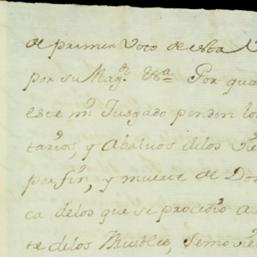 de primer voto de esta
por su Mag.d &.a Por qua
este mi Juzgado penden lo
tarios y Abaluos delos vie
por fin, y muerte de Don
ca delos que se procedio a
te delos Muebles, Semovie